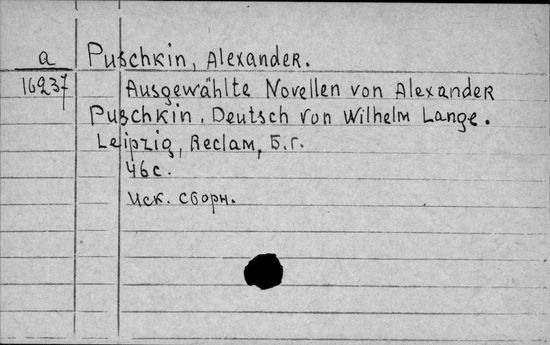 a Puschkin, Alexander.
16237 Ausgewählte Novellen von Alexander
Puschkin. Deutsch von Wilhelm Lange.
Leipzig, Reclam, Б.г.
46с.
Иск. сборн.